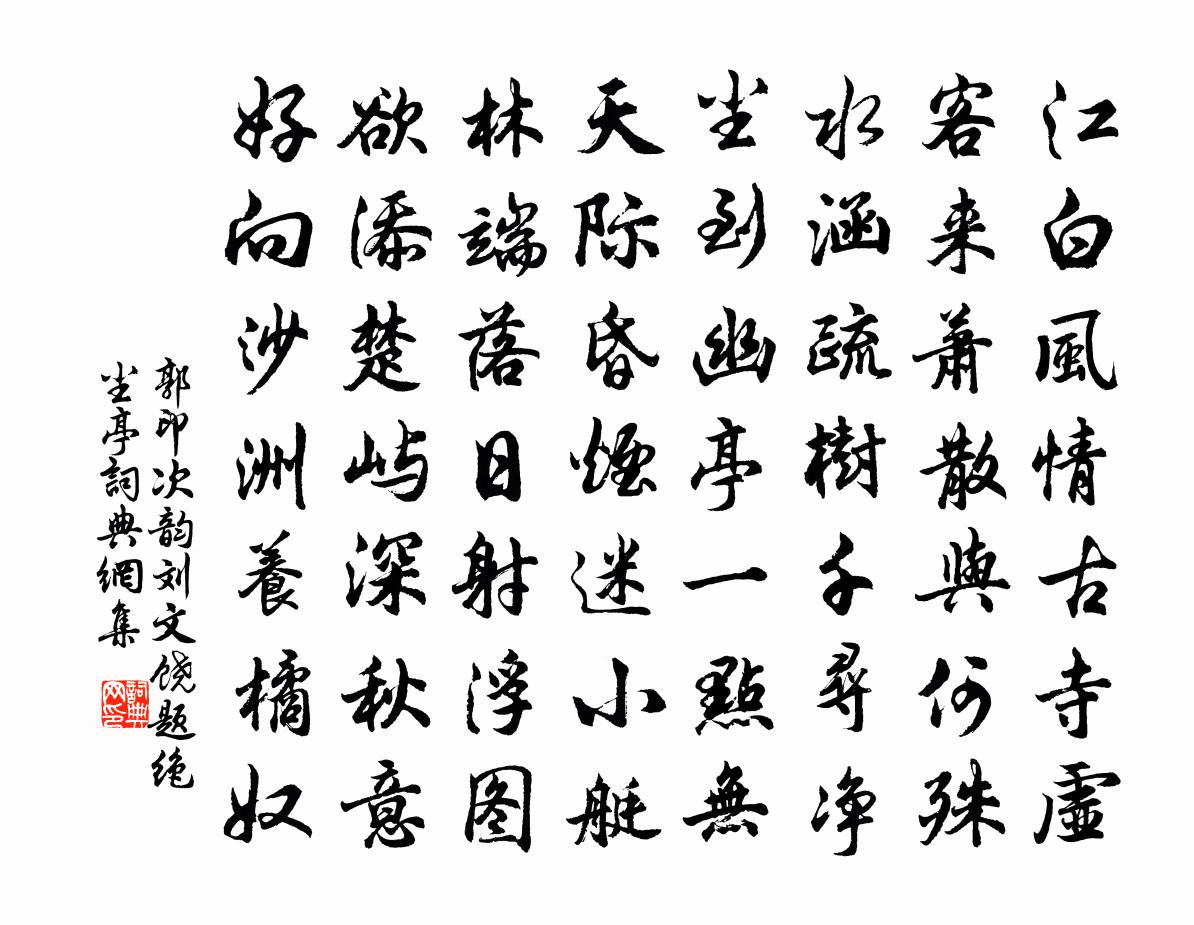 江白風情古寺虛
客来蕭散與何殊
水涵疏樹千尋净
坐到幽亭一點無
天际昏煙迷小艇
林端落日射浮图
欲添楚屿深秋意
好向沙洲養橘奴
郭印次韵刘文饶题绝
坐亭詞典網集
詞典网印